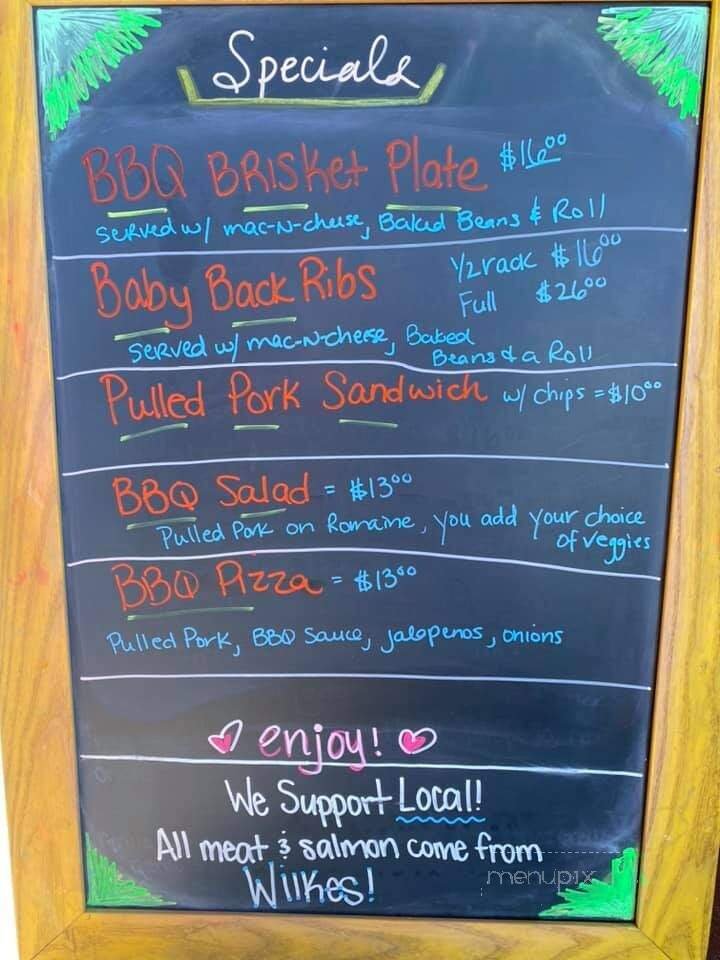 Specials
BBQ BRISKet Plate $16.00
served w/ mac-N-cheese, Baked Beans & Roll
Baby Back Ribs 1/2 rack $16.00
Full $26.00
served w/ mac-N-cheese, Baked
Beans & a Roll
Pulled Pork Sandwich w/ chips = $10.00
BBQ Salad = $13.00
Pulled Pork on Romaine, you add your choice
of veggies
BBQ Pizza = $13.00
Pulled Pork, BBQ Sauce, jalapenos, onions
enjoy!
We Support Local!
All meat & salmon come from
Wilkes!
menupix